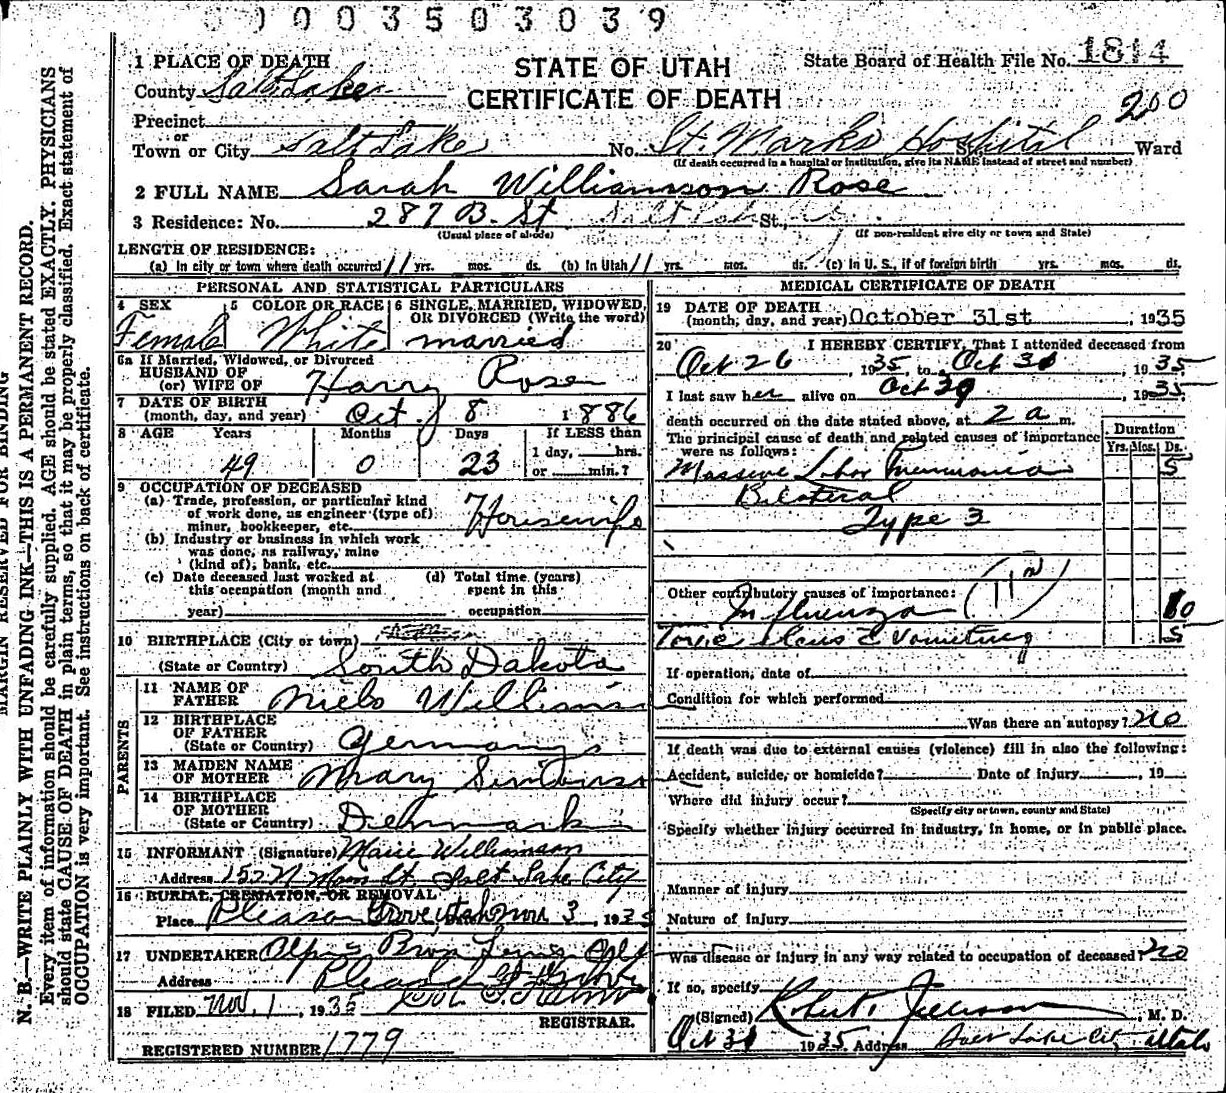 0 0 0 3 5 0 3 0 3 9
MARGIN RESERVED FOR BINDING
N. B.—WRITE PLAINLY WITH UNFADING INK—THIS IS A PERMANENT RECORD.
Every item of information should be carefully supplied. AGE should be stated EXACTLY. PHYSICIANS
should state CAUSE OF DEATH in plain terms, so that it may be properly classified. Exact statement of
OCCUPATION is very important. See instructions on back of certificate.
STATE OF UTAH
CERTIFICATE OF DEATH
State Board of Health File No. 1814
200
1 PLACE OF DEATH
County Salt Lake
Precinct
or
Town or City Salt Lake No. St. Marks Hospital St. Ward
(If death occurred in a hospital or institution, give its NAME instead of street and number)
2 FULL NAME Sarah Williamson Rose
3 Residence: No. 287 B. St Salt Lake St.,
(Usual place of abode) (If non-resident give city or town and State)
LENGTH OF RESIDENCE:
(a) In city or town where death occurred 11 yrs. mos. ds. (b) In Utah 11 yrs. mos. ds. (c) In U. S., if of foreign birth yrs. mos. ds.
PERSONAL AND STATISTICAL PARTICULARS
4 SEX Female
5 COLOR OR RACE White
6 SINGLE, MARRIED, WIDOWED, OR DIVORCED (Write the word) married
6a If Married, Widowed, or Divorced
HUSBAND OF
(or) WIFE OF Harry Rose
7 DATE OF BIRTH
(month, day, and year) Oct. 8 1886
8 AGE Years Months Days If LESS than
49 0 23 1 day, hrs.
or min.?
9 OCCUPATION OF DECEASED
(a) Trade, profession, or particular kind
of work done, as engineer (type of)
miner, bookkeeper, etc. Housewife
(b) Industry or business in which work
was done, as railway, mine
(kind of), bank, etc.
(c) Date deceased last worked at
this occupation (month and
year)
(d) Total time (years)
spent in this
occupation
10 BIRTHPLACE (City or town)
(State or Country) South Dakota
PARENTS
11 NAME OF
FATHER Niels Williamson
12 BIRTHPLACE
OF FATHER
(State or Country) Germany
13 MAIDEN NAME
OF MOTHER Mary
14 BIRTHPLACE
OF MOTHER
(State or Country) Denmark
15 INFORMANT (Signature) Marie Williamson
Address 152 N Main St Salt Lake City
16 BURIAL, CREMATION, OR REMOVAL
Place Pleasant Grove, Utah Date Nov 3, 1935
17 UNDERTAKER
Address Pleasant Grove
18 FILED Nov. 1, 1935
REGISTRAR.
REGISTERED NUMBER 1779
MEDICAL CERTIFICATE OF DEATH
19 DATE OF DEATH
(month, day, and year) October 31st, 1935
20 I HEREBY CERTIFY, That I attended deceased from
Oct 26, 1935, to Oct 31 1935
I last saw her alive on Oct 30, 1935
death occurred on the date stated above, at 2 a m.
The principal cause of death and related causes of importance
were as follows:
Duration
Yrs. Mos. Ds.
Massive Lobar Pneumonia 5
Bilateral
Type 3
Other contributory causes of importance:
Influenza (11) 10
Toxic Ileus c Vomiting 5
If operation, date of
Condition for which performed
Was there an autopsy? no
If death was due to external causes (violence) fill in also the following:
Accident, suicide, or homicide? Date of injury , 19
Where did injury occur?
(Specify city or town, county and State)
Specify whether injury occurred in industry, in home, or in public place.
Manner of injury
Nature of injury
Was disease or injury in any way related to occupation of deceased? no
If so, specify
(Signed) Robert , M. D.
Oct 31 1935. Address Salt Lake City Utah